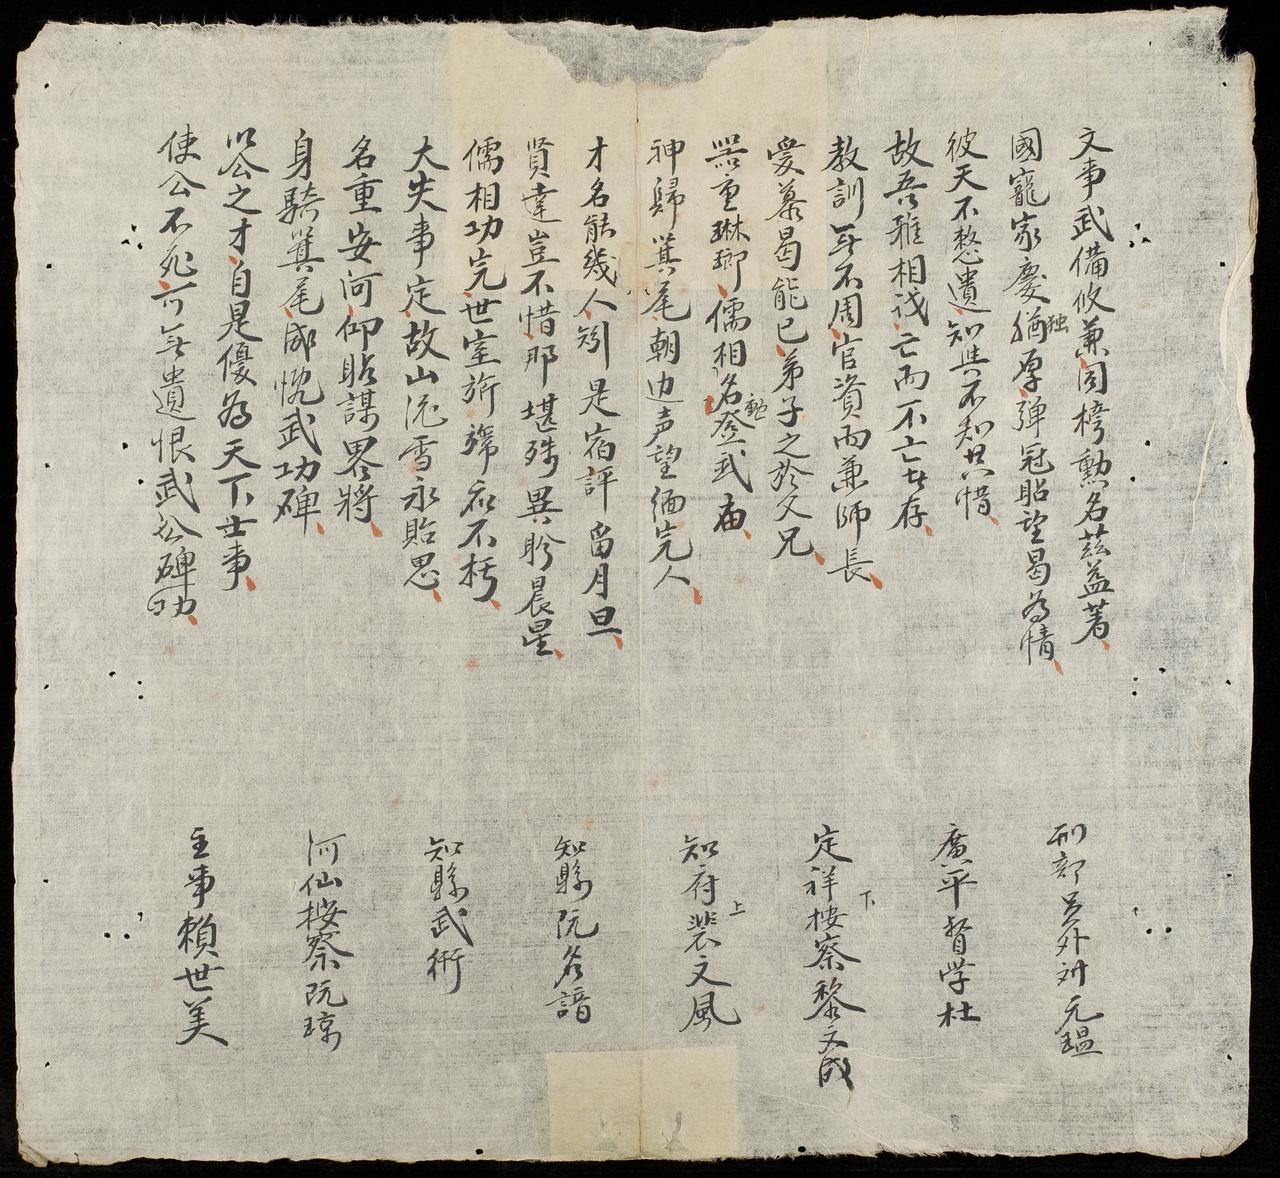 文事武備攸兼同榜勲名茲益著
國寵家慶猶独厚弾冠貽望曷為情
彼天不憗遺知與不知共惜
故吾雅相
亡而不亡者存
教訓無不周官資而兼師長
愛慕曷能已弟子之於父兄
器重琳瑯儒相名登武庙
勲
神歸箕尾朝边声望緬完人
才名能幾人矧是宿評畄月旦
賢達豈不惜那堪殊異昣晨星
儒相功完世室旂常在不朽
大失事定故山流雪永貽思
名重安河仰貽謀畧將
身騎箕尾感慨武功碑
以公之才自是優為天下士事
使公不死可無遺恨武公碑功
刑部員外
元瑥
廣平督学杜
定祥按察黎文成
下
知府裴文風
上
知縣阮名諳
知縣武術
河仙按察阮琼
主事賴世美